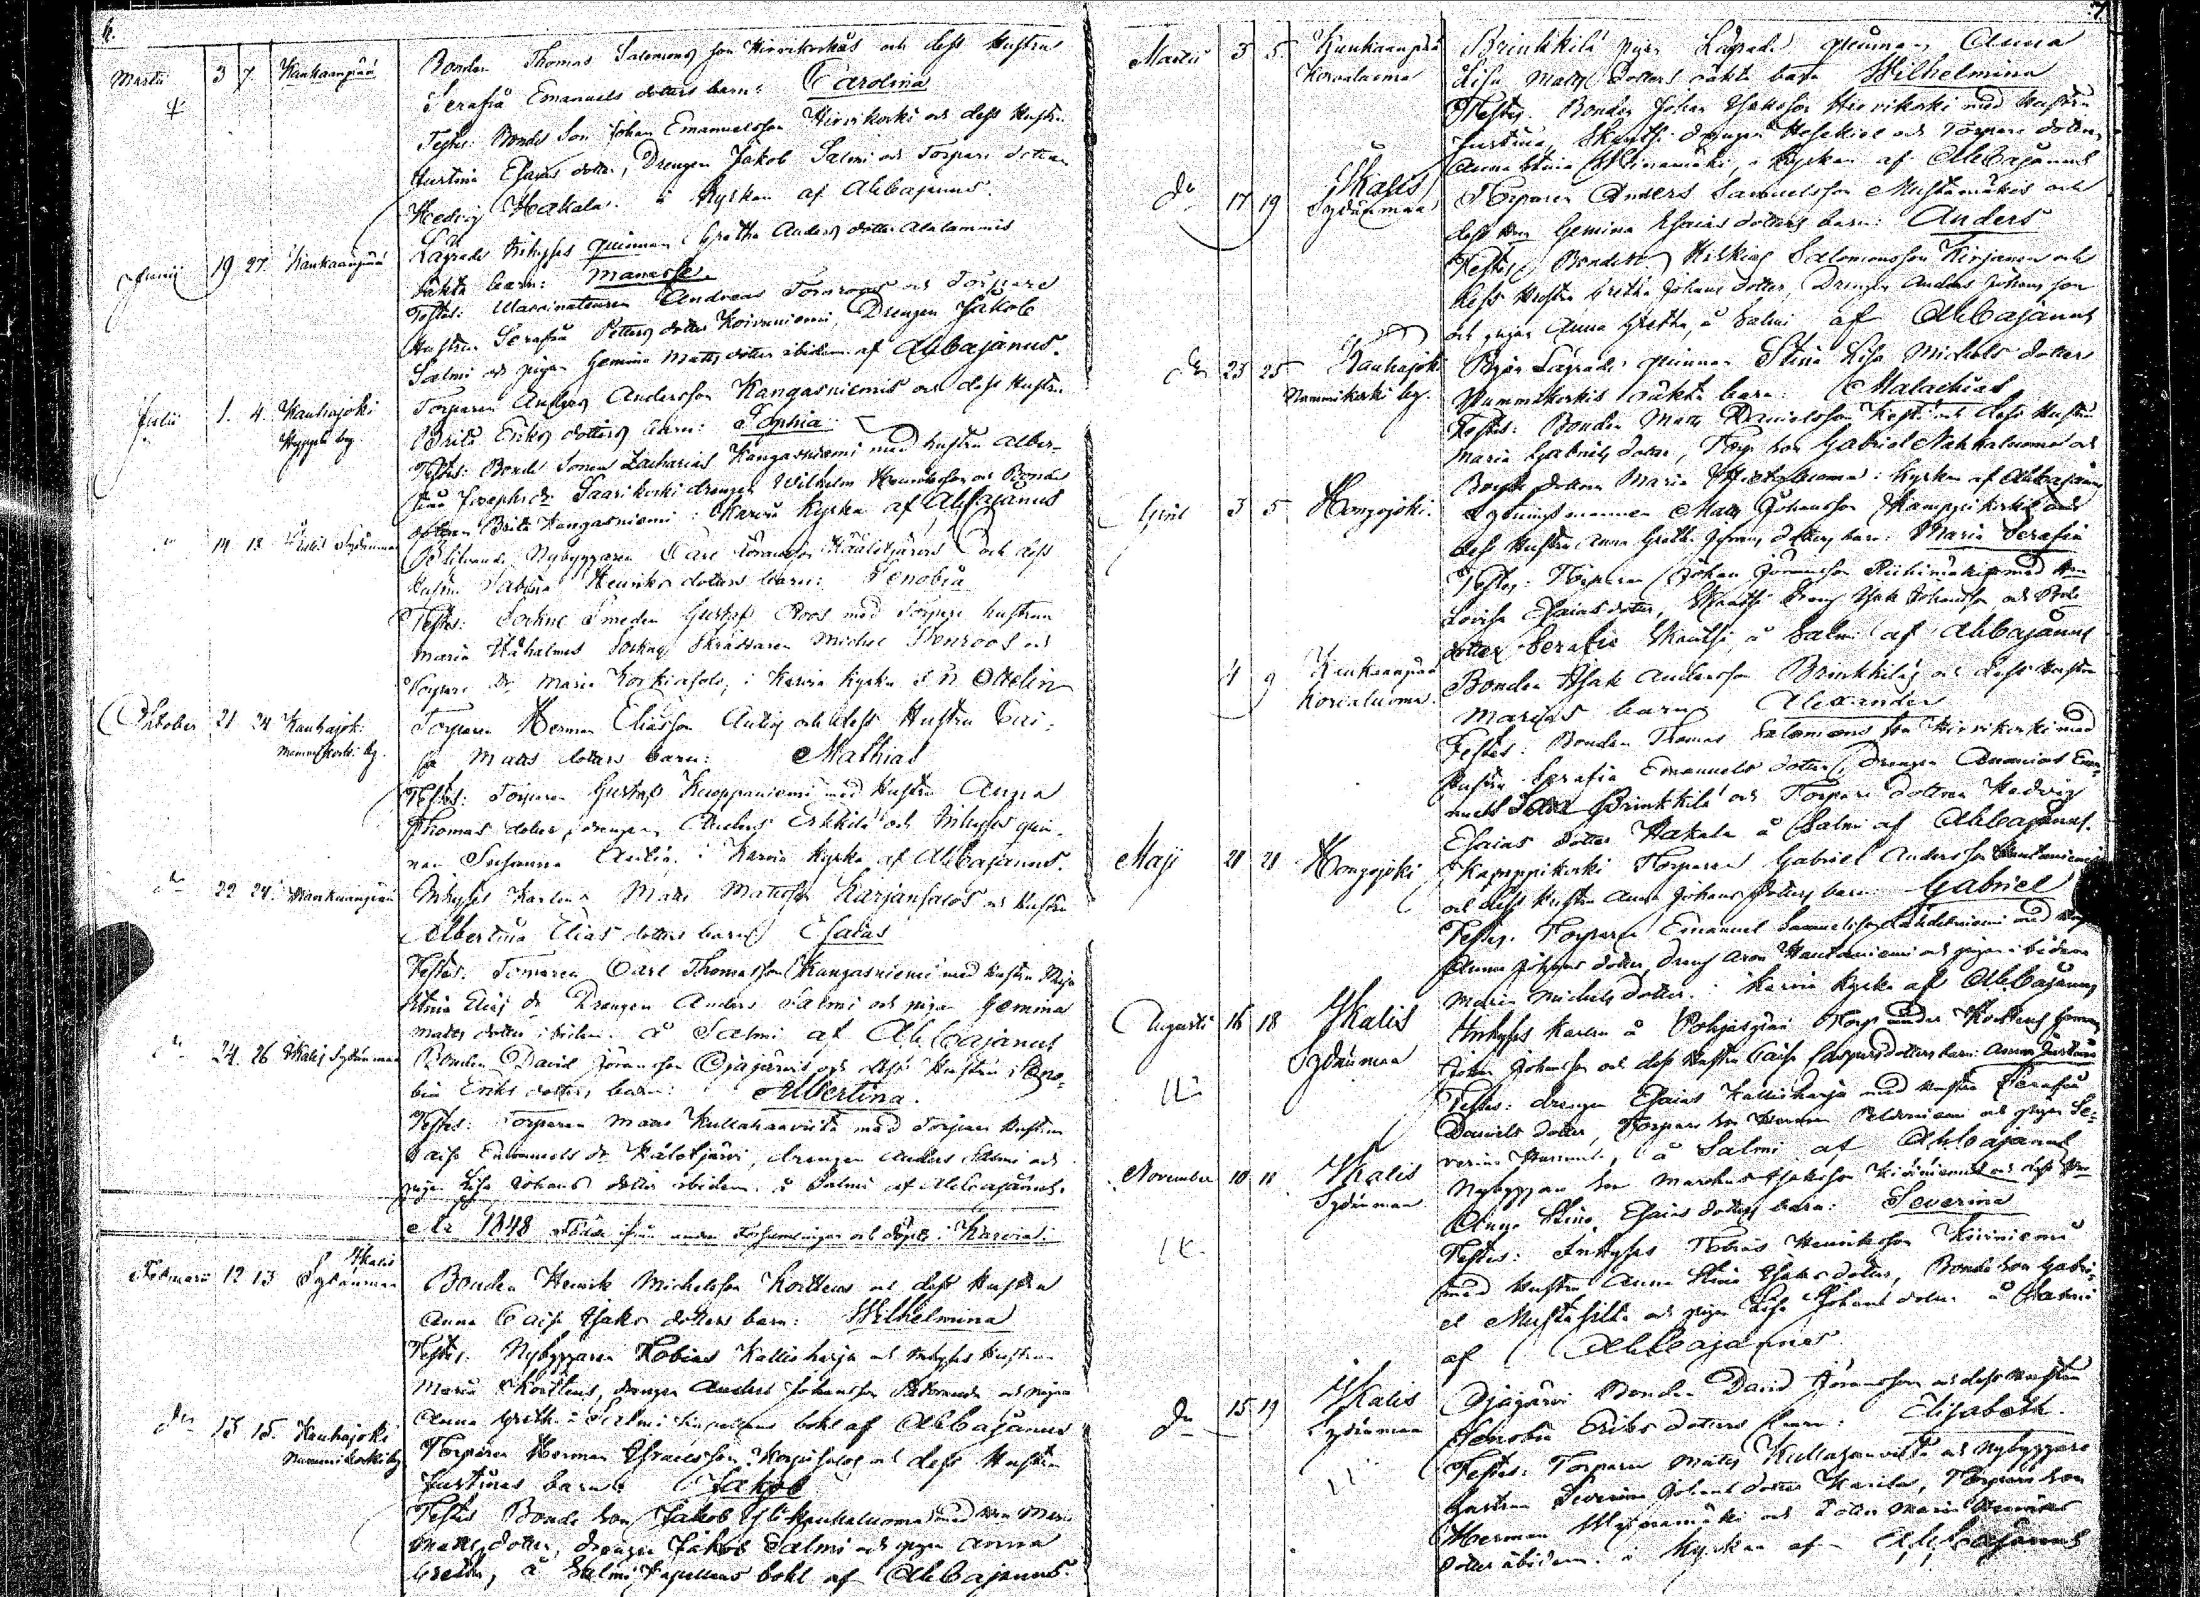 6.
Martii 3 7. Kankaanpää Bonden Thomas Salomons son Hirvikoskis och dess Hustrus
Serafia Emanuels dotters barn: Carolina
Testes: Bonde Son Johan Emanuelsson Hirvikoski och dess Hustru
Justina Esaias dotter, Drengen Jakob Salmi och Torpare dottren
Hedvig Hakala. i Kyrkan af Ahlbajanus.
Junii 19 27. Kankaanpää Lägrade Inhyses quinnan Gretha Anders dotter Alalammis
oäkta barn: Manasse.
Testes: Vaccinateuren Andreas Törnroos och Torpare
Hustrun Serafia Petters dotter Koivuniemi, Drengen Jakob
Salmi och pigan Gemina Matts dotter ibidem af Ahlbajanus.
Julii 1. 4. Kauhajoki Torparen Anders Andersson Kangasniemis och dess Hustru
Hyyppä by Brita Eriks dotters barn: Sophia
Testes: Bonde Sonen Zacharias Kangasniemi med hustru Alber-
tina Josephs dr Saarikoski drengen Wilhelm Henriksson och Bonde
dottren Brita Kangasniemi i Karvia Kyrka af Ahlbajanus
14 18 Ikalis Sydänmaa Nybyggaren Carl Göransson Käälitjärvi och dess
Hustru Sabina Henriks dotters barn: Senobia
Testes: Sockne Smeden Gustaf Roos med Torpare hustrun
Maria Sockne Skräddaren Michel Stenroos och
Torpare Dr Maria i Karvia Kyrka S. N. Ottelin
October 21 24 Kauhajoki Torparen Herman Eliasson Antilas och dess Hustru Cai-
Nummikoski by. sa Matts dotters barn: Mathias
Testes: Torparen Gustaf Kuoppaniemi med Hustru Anna
Thomas dotter, drengen Anders Erkkilä och Inhyses quin-
nan Susanna Antila i Karvia Kyrka af Ahlbajanus.
do 22 24. Kankaanpää Inhyses Karlen Matts Mattsson Karjansalos och Hustru
Albertina Elias dotters barn: Esaias
Testes: Torparen Carl Thomasson Kangasniemi med hustru Maja
Stina Elias dr Drengen Anders Salmi och pigan Gemina
Matts dotter ibidem. å Salmi af Ahlbajanus
do 24. 26 Ikalis Sydänmaa Bonden David Göransson Ojajärvis och dess Hustru Seno-
bia Eriks dotters barn: Albertina.
Testes: Torparen Matts Kullahanvista med Torpare hustrun
Caisa Emanuels dr Kälotjärvi, drengen Anders Salmi och
pigan Lisa Johans dotter ibidem. å Salmi af Ahlbajanus.
År 1848 födde ifrån andra Församlingar och döpte i Karvia.
Februarii 12 13 Ikalis Sydänmaa Bonden Henrik Michelsson Kortteus och dess Hustrus
Anna Caisa Isaks dotters barn: Wilhelmina
Testes: Nybyggaren Tobias Kallioharja och Inhyses Hustrun
Maria Kortteus, drengen Anders Johansson och pigan
Anna Greth. i Salmi Capellans bohl af Ahlbajanus
do 13 15. Kauhajoki Torparen Herman Israelsson Korpisalos och dess Hustru
Nummikoski by Justinas barn: Jakob
Testes Bonde Son Jakob Yli Kauhaluoma med Hru Maria
Matts dotter, drengen Jakob Salmi och pigan Anna
Gretha, å Salmi Kapellans bohl af Ahlbajanus.
7.
Martii 3 5. Kankaanpää Brinkkilä pigan Lägrade quinnan Anna
Korvaluoma Lisa Matts dotters oäkta barn Wilhelmina
Testes. Bonden Johan Isaksson Hirvikoski med Hustru
Justina, Skantsi drengen Hesekiel och Torpare dottren
Anna Stina i Kyrkan af Ahlbajanus
do 17 19 Ikalis Torparen Anders Samuelsson Mustamäkis och
Sydänmaa dess Hru Gemina Esaias dotters barn: Anders
Testes, Bonden Hiskias Salomonsson Kirjanen och
dess Hustru Gretha Johans dotter, Drengen Anders Johans son
och pigan Anna Gretha, å Salmi af Ahlbajanus
do 23 25 Kauhajoki Pigan Lägrade quinnan Stina Lisa Michels dotters
Nummikoski by. Nummikoskis oäkta barn: Malachias
Testes: Bonden Matts Danielsson Keski och dess Hustru
Maria Gabriels dotter, Torp. Son Gabriel Nahkaluoma och
Bonde dottren Maria i Kyrkan af Ahlbajanus
April 3 5 Hongojoki. Lysningsmannen Matts Johansson Kamppikoskis och
dess Hustru Anna Gretha dotters barn: Maria Serafia
Testes: Torparen Johan Göransson Riihimäki med Hru
Lovisa Esaias dotter, Skantsi Dreng Isak Johansson och Bonde
dotter Serafia Skantsi, å Salmi af Ahlbajanus
4 9 Kankaanpää Bonden Isak Andersson Brinkkiläs och dess Hustru
Korvaluoma. Marias barn Alexander
Testes: Bonden Thomas Salomons son Hirvikoski med
Hustru Serafia Emanuels dotter, Drengen Ananias Ema-
nuels Son Brinkkilä och Torpare dottren Hedvig
Esaias dotter Hakala å Salmi af Ahlbajanus.
Maji 21 21 Hongojoki Kamppikoski Torparen Gabriel Andersson Hautaniemis
och dess Hustru Anna Johans dotters barn: Gabriel
Testes. Torparen Emanuel Samuelsson Lähdekniemi med Hustru
Anna Johans dotter, dreng Aron Hautaniemi och pigan ibidem
Maria Michels dotter. i Karvia Kyrka af Ahlbajanus
Augusti 16 18 Ikalis Inhyses Karlen å Pohjasjärvi Torp under Kortteus hemm.
Sydänmaa Johan Johansson och dess Hustru Caisa Caspers dotters barn: Anna Justina
Testes: drengen Esaias Kallioharja med Hustru Serafia
Daniels dotter, Torpare Son Herman Peldoniemi och pigan Se-
verina å Salmi af Ahlbajanus
November 10 11 Ikalis Nybyggare Son Marchus Isaksson Kiviniemis och dess Hru
Sydänmaa Anna Stina Esaias dotters barn: Severina
Testes: Inhyses Tobias Henriksson Kiviniemi
med Hustru Anna Stina Isaks dotter, Bonde Son Gabri-
el Mustasilta och pigan Lisa Johans dotter å Salmi
af Ahlbajanus
do 15 19 Ikalis Ojajärvi Bonden David Göransson och dess Hustru
Sydänmaa Senobia Eriks dotters barn: Elisabeth.
Testes: Torparen Matts Kullahanvista och Nybyggare
hustrun Severina Johans dotter Karila, Torpare Son
Herman Myllymäki och dotter Maria Henriks
dotter ibidem. i Kyrkan af Ahlbajanus